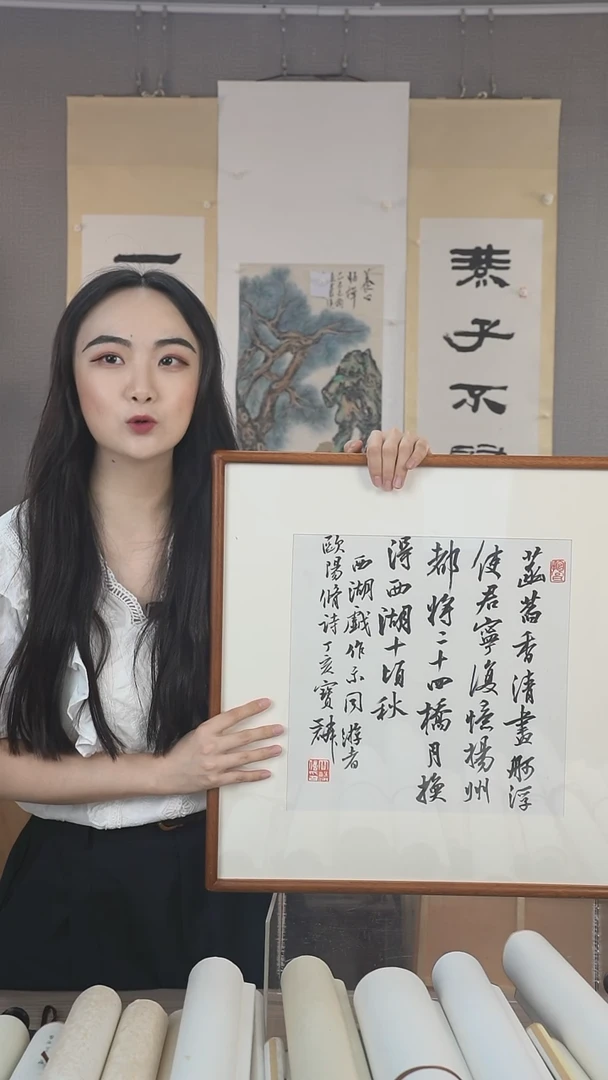 燕子不
菡萏香清畫舸浮
使君寧復憶揚州
都將二十四橋月換
得西湖十頃秋
西湖戲作示同游者
歐陽脩詩丁亥寶麟